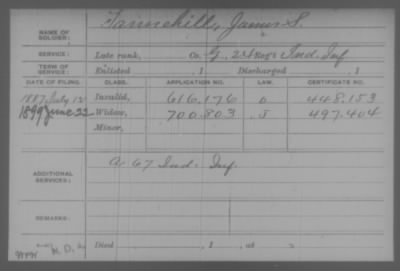 NAME OF SOLDIER: Tannehill, James S.
SERVICE: Late rank, Co. G, 24 Reg't Ind. Inf.
TERM OF SERVICE: Enlisted , 1 Discharged , 1
DATE OF FILING. CLASS. APPLICATION NO. LAW. CERTIFICATE NO.
1887 July 12 Invalid, 616.176 448.153
1899 June 22 Widow, 700.803 497.404
Minor,
ADDITIONAL SERVICES: A 67 Ind. Inf.
REMARKS:
Died , 1 , at